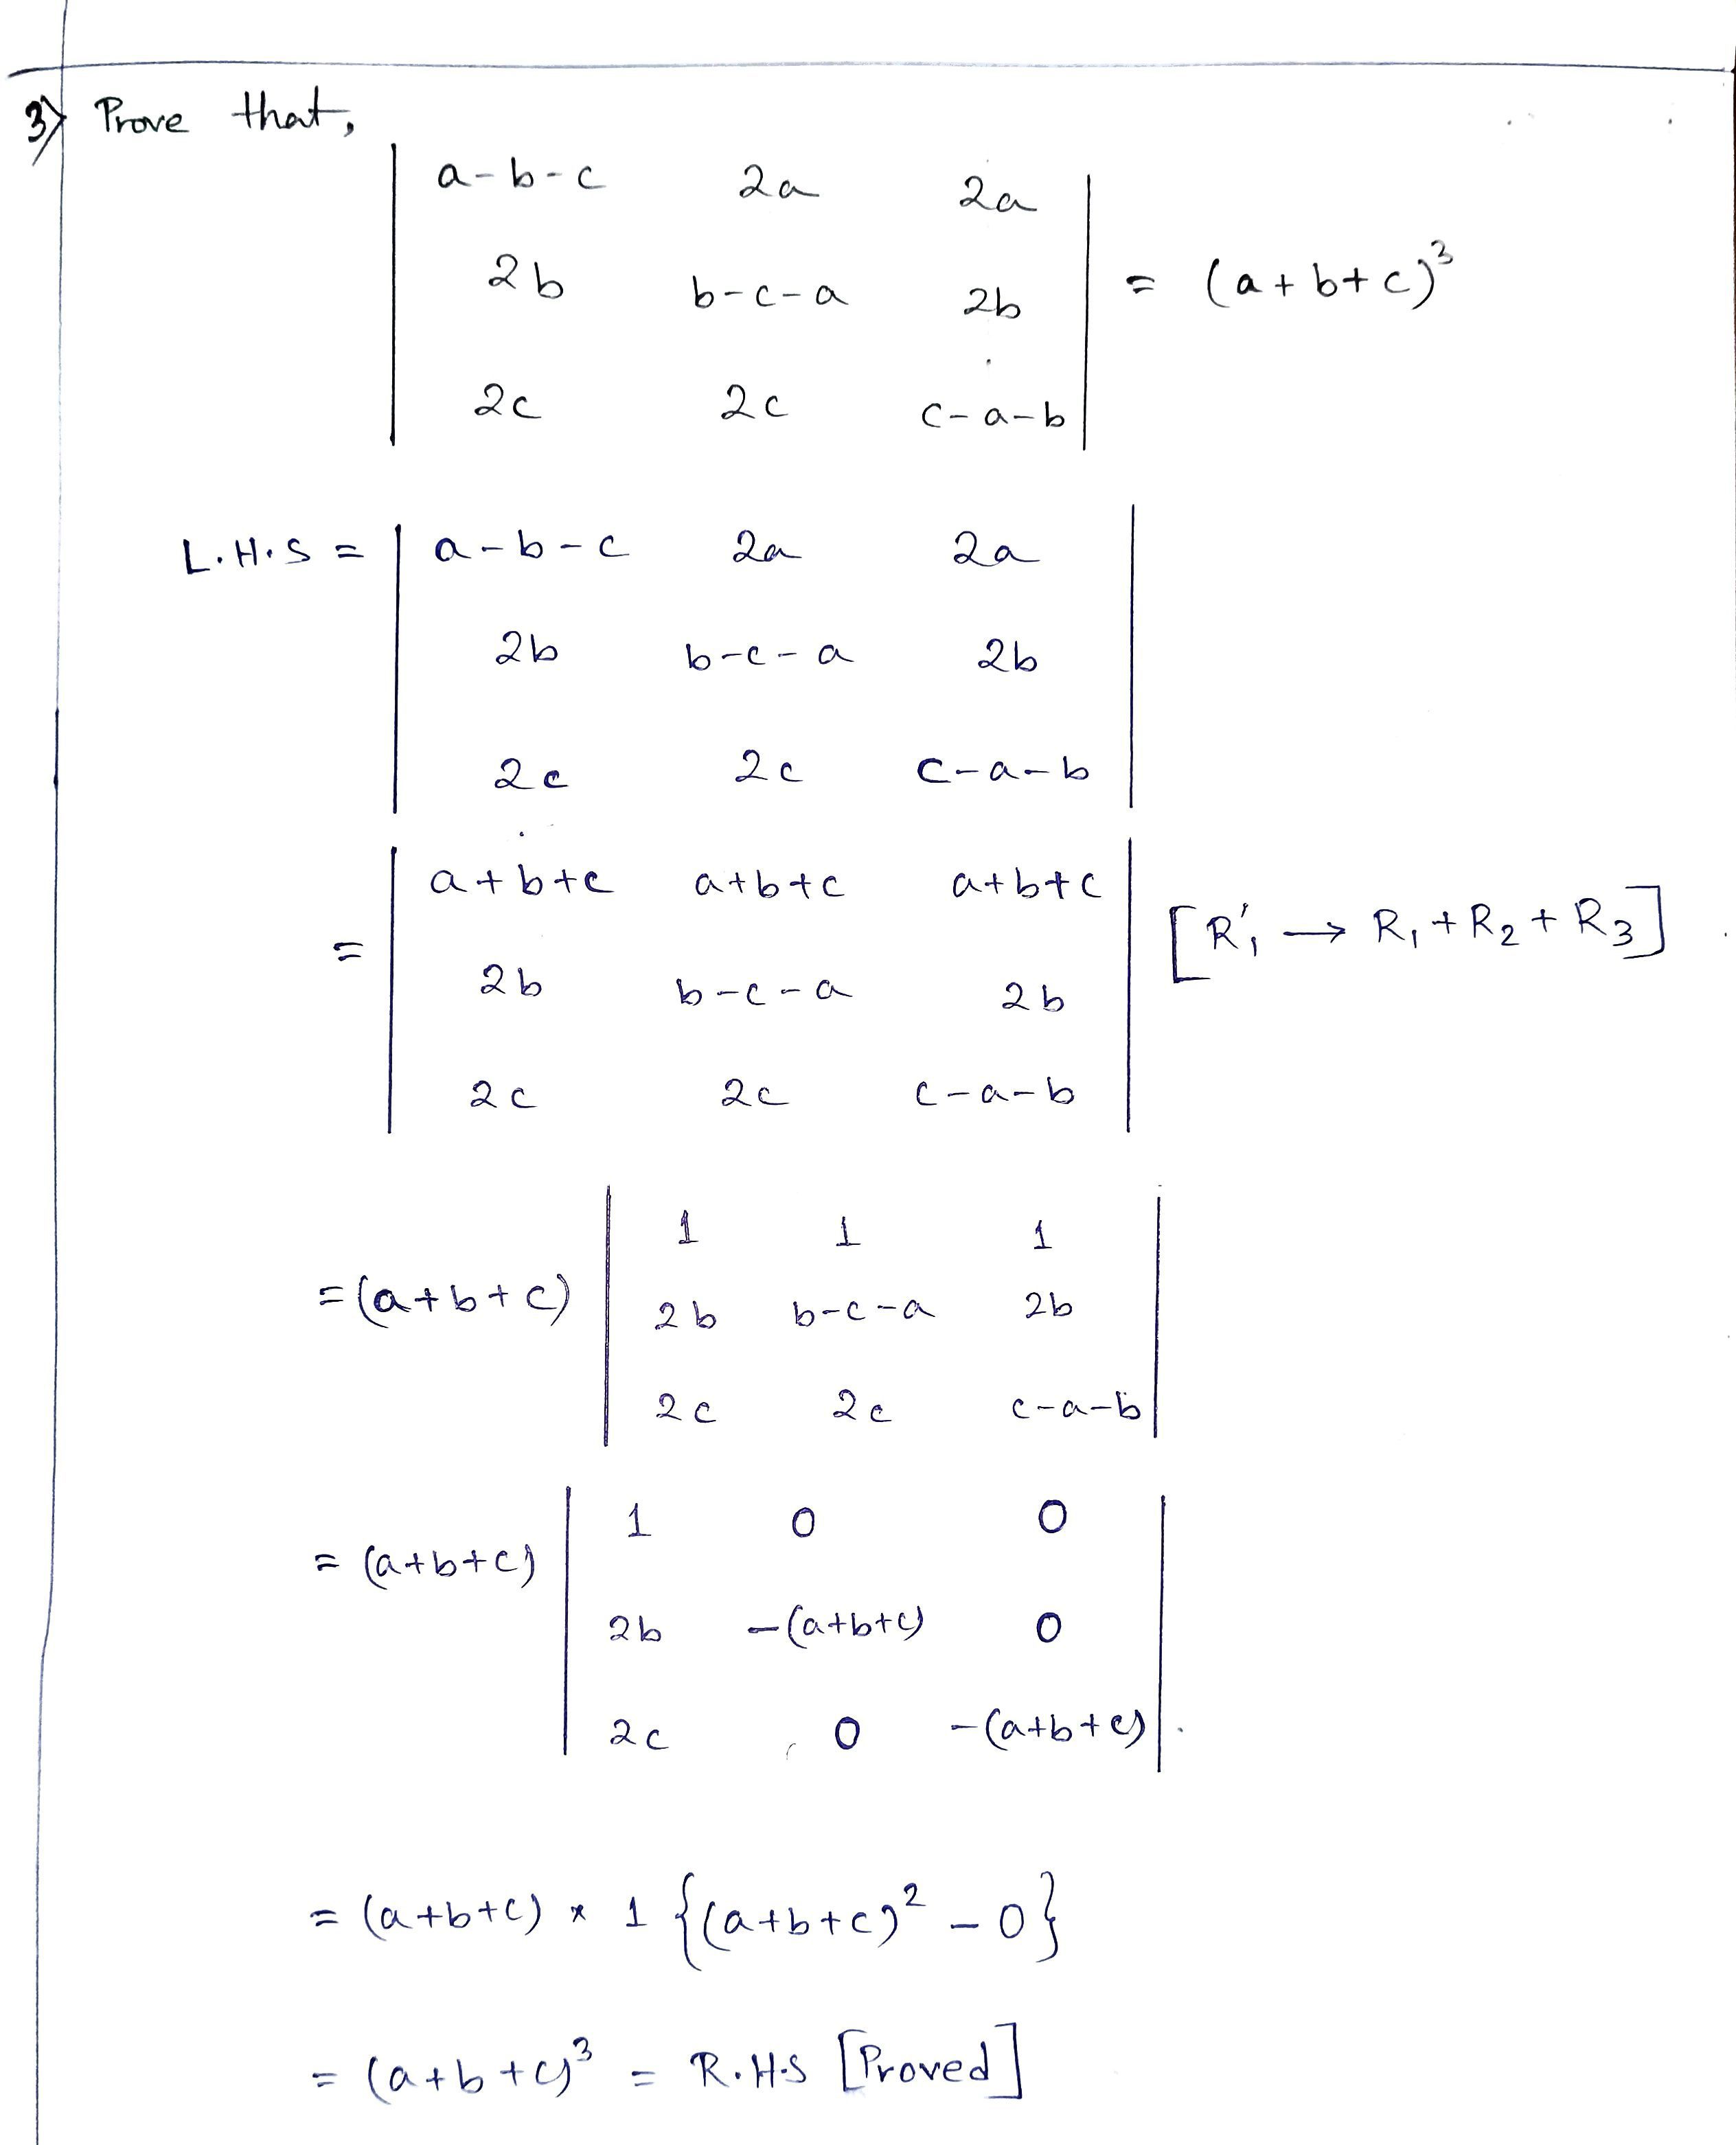 3) Prove that,
| a-b-c 2a 2a |
| 2b b-c-a 2b | = (a+b+c)³
| 2c 2c c-a-b |
L.H.S = | a-b-c 2a 2a |
| 2b b-c-a 2b |
| 2c 2c c-a-b |
= | a+b+c a+b+c a+b+c | [R'₁ → R₁+R₂+R₃]
| 2b b-c-a 2b |
| 2c 2c c-a-b |
= (a+b+c) | 1 1 1 |
| 2b b-c-a 2b |
| 2c 2c c-a-b |
= (a+b+c) | 1 0 0 |
| 2b -(a+b+c) 0 |
| 2c 0 -(a+b+c) |
= (a+b+c) * 1 {(a+b+c)² - 0}
= (a+b+c)³ = R.H.S [Proved]